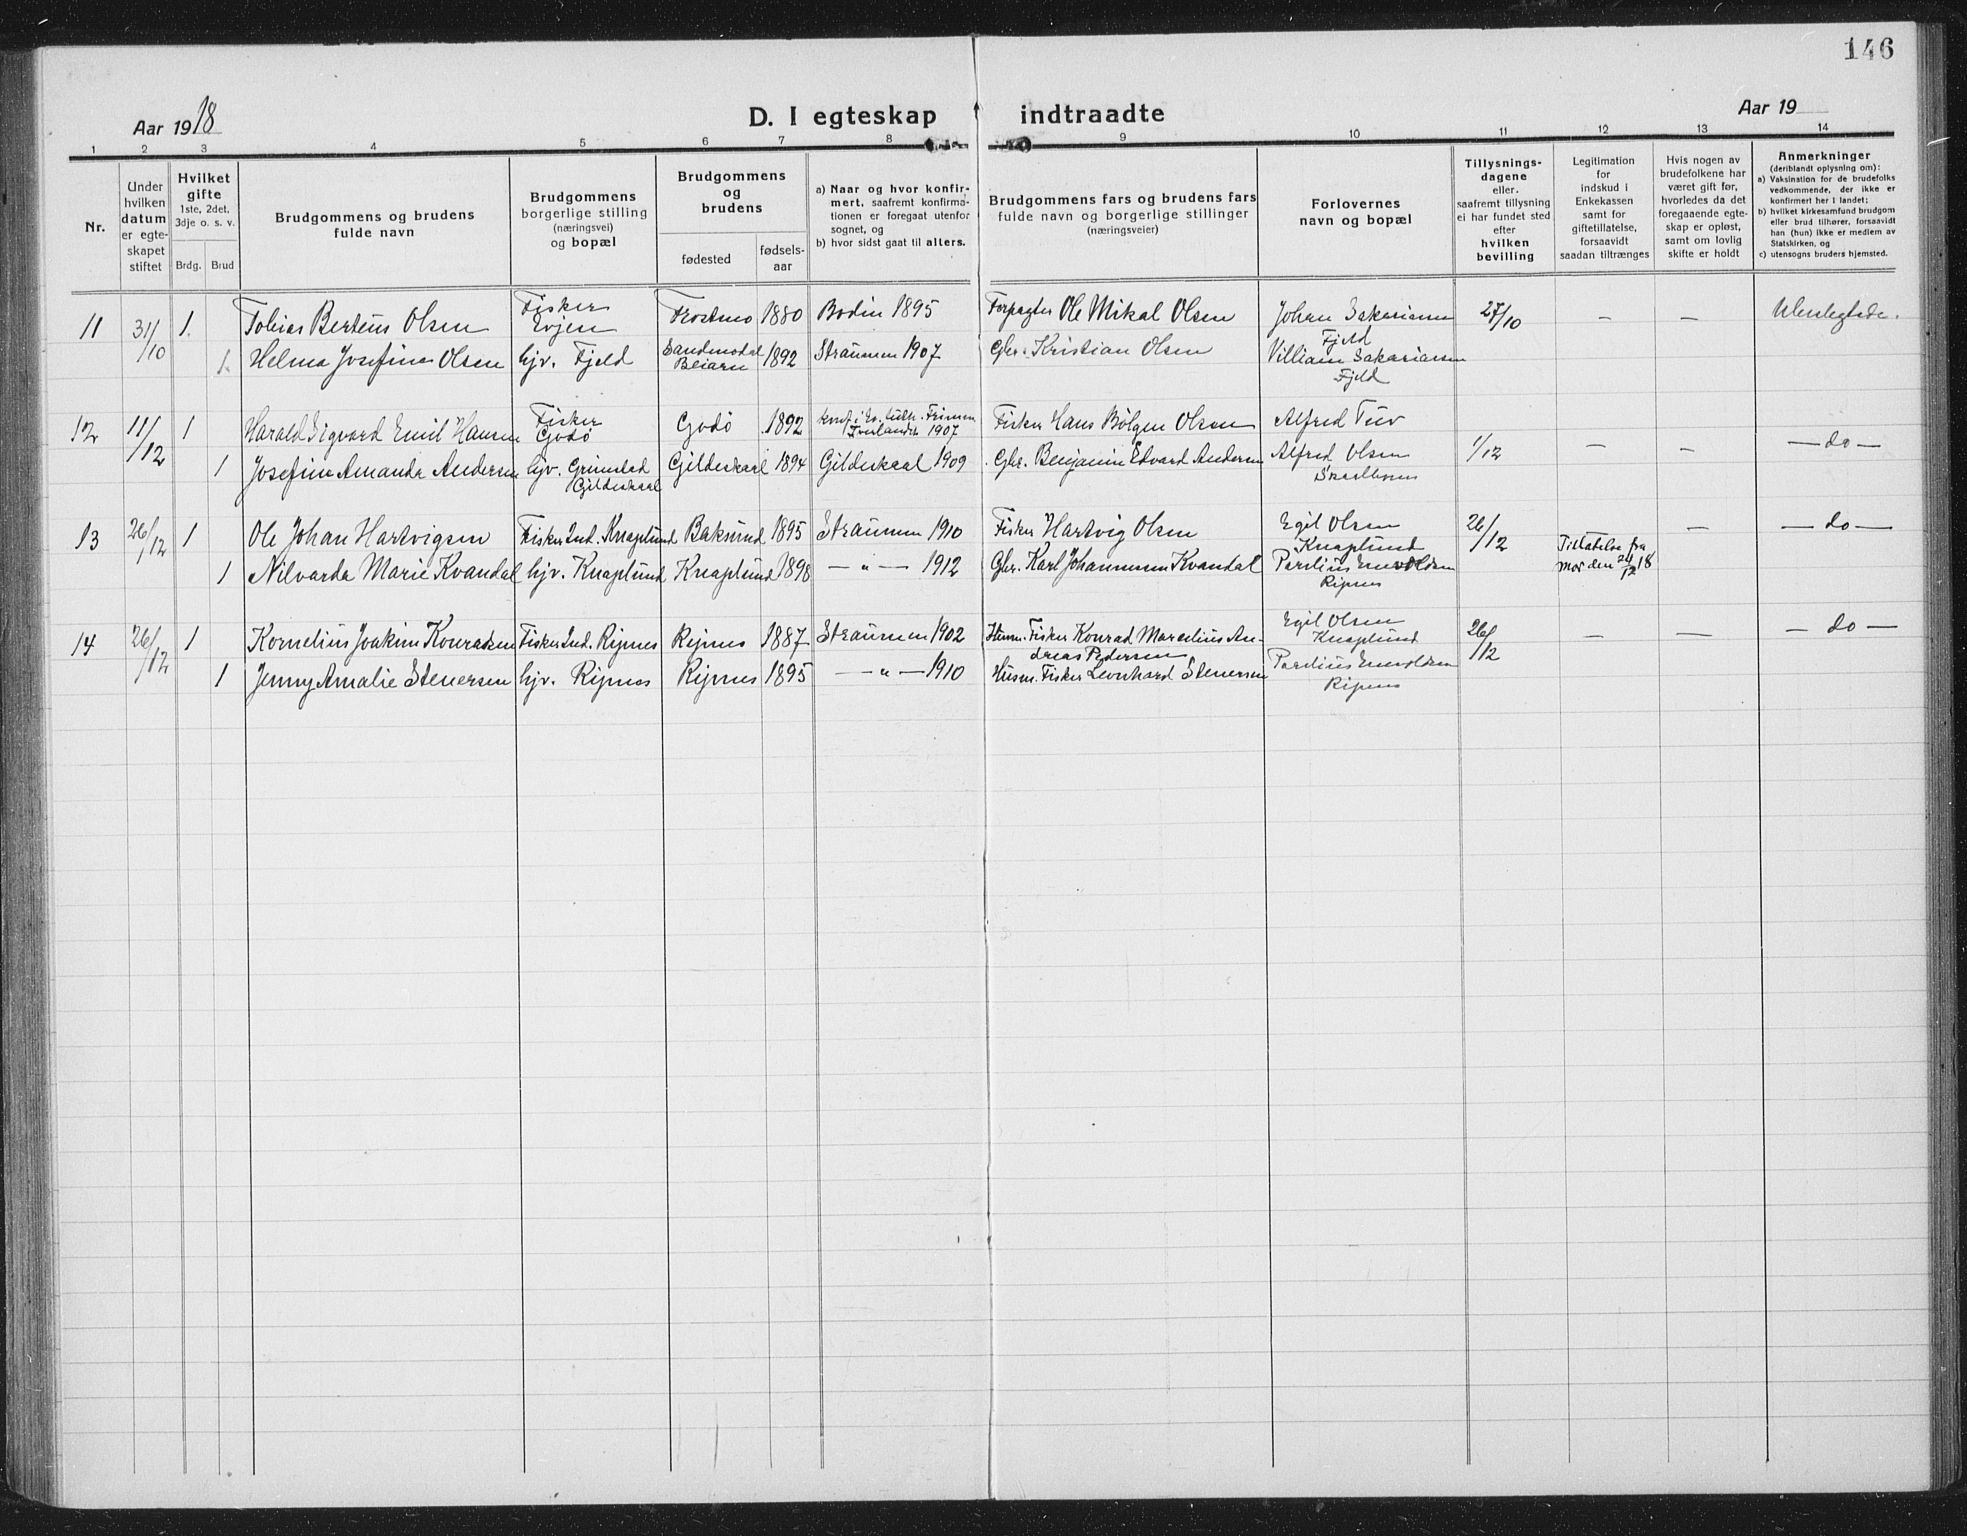 146
Aar 1918
D. I egteskap indtraadte
Aar 19
1 2 3 4 5 6 7 8 9 10 11 12 13 14
Nr.
Under
hvilken
datum
er egte-
skapet
stiftet
Hvilket
gifte
1ste, 2det,
3dje o. s. v.
Brdg. Brud
Brudgommens og brudens
fulde navn
Brudgommens
borgerlige stilling
(næringsvei)
og bopæl
Brudgommens
og
brudens
fødested
fødsels-
aar
a) Naar og hvor konfir-
mert, saafremt konfirma-
tionen er foregaat utenfor
sognet, og
b) hvor sidst gaat til alters.
Brudgommens fars og brudens fars
fulde navn og borgerlige stillinger
(næringsveier)
Forlovernes
navn og bopæl
Tillysnings-
dagene
eller.
saafremt tillysning
ei har fundet sted
efter
hvilken
bevilling
Legitimation
for
indskud i
Enkekassen
samt for
giftetillatelse,
forsaavidt
saadan tiltrænges
Hvis nogen av
brudefolkene har
været gift før,
hvorledes da det
foregaaende egte-
skap er opløst,
samt om lovlig
skifte er holdt
Anmerkninger
(deriblandt oplysning om):
a) Vaksination for de brudefolks
vedkommende, der ikke er
konfirmert her i landet;
b) hvilket kirkesamfund brudgom
eller brud tilhører, forsaavidt
han (hun) ikke er medlem av
Statskirken, og
c) utensogns bruders hjemsted.
11 31/10 1. Tobias Berteus Olsen Fisker Evjen Frostmo 1880 Bodin 1895 Forpagter Ole Mikal Olsen Johan Sakariassen Fjeld 27/10 — — Ubeslegtede.
1. Helma Josefine Olsen hjv. Fjeld Beiarn 1892 Straumen 1907 Gbr. Kristian Olsen Villiam Sakariassen Fjeld
12 11/12 1 Harald Sigvard Emil Hansen Fisker Godø Godø 1892 1907 Fisker Hans Bølgen Olsen Alfred Tuv
1 Josefine Amanda Andersen hjv. Grimstad Gildeskaal Gildeskaal 1894 Gildeskaal 1909 Gbr. Benjamin Edvard Andersen Alfred Olsen 1/12 — — — do —
13 26/12 1 Ole Johan Hartvigsen Fisker Ind. Knaplund Baksund 1895 Straumen 1910 Fisker Hartvig Olsen Egil Olsen Knaplund 26/12 — — do —
1 Nilvarda Marie Kvandal hjv. Knaplund Knaplund 1898 — " — 1912 Gbr. Karl Johannessen Kvandal Parelius Enevoldsen Ripnes Tillatelse fra mor den 24/12 18
14 26/12 1 Kornelius Joakim Konradsen Fisker Ind. Ripnes Ripnes 1887 Straumen 1902 Husm. Fisker Konrad Marcelius An- Egil Olsen Knaplund 26/12 — — — do —
dreas Pedersen
1 Jenny Amalie Stenersen hjv. Ripnes Ripnes 1895 — " — 1910 Husm. Fisker Leonhard Stenersen Parelius Enevoldsen Ripnes